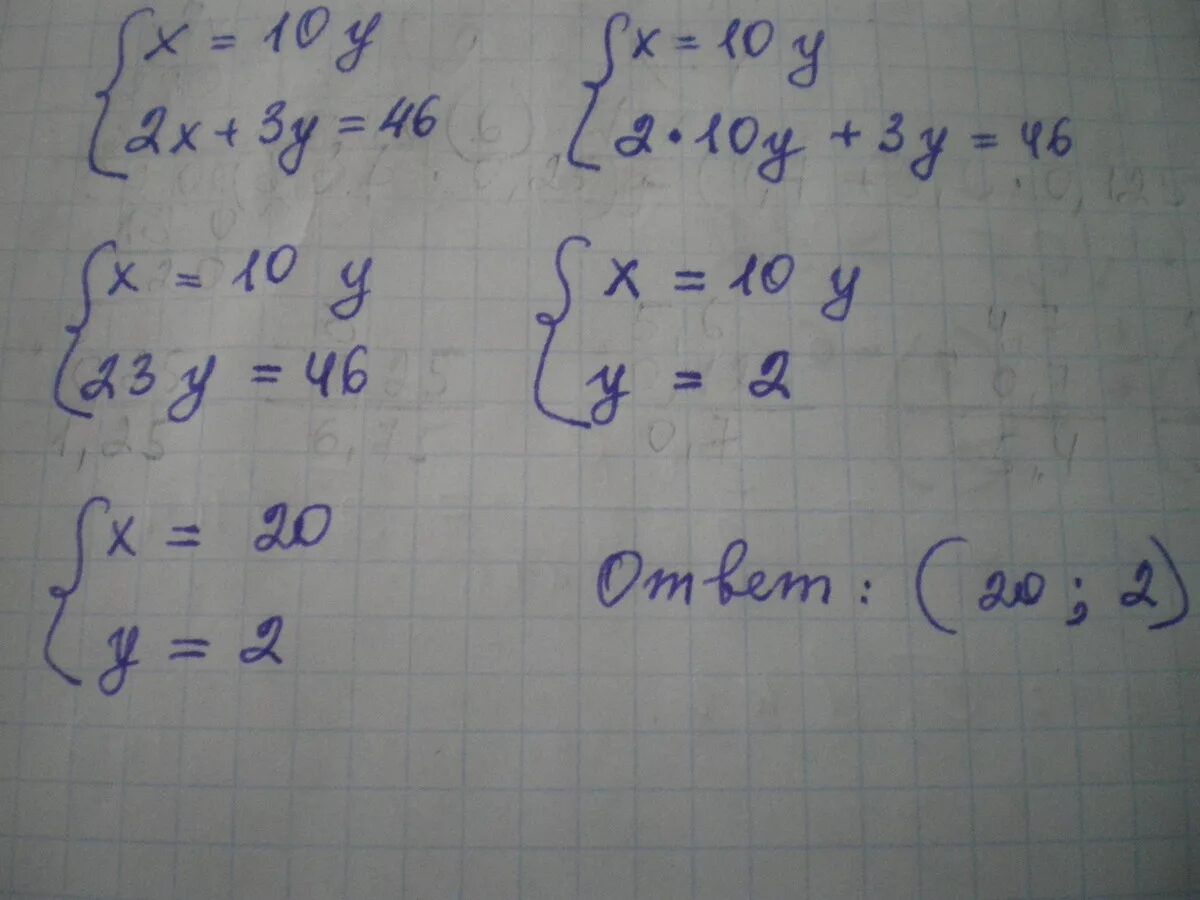 { x = 10 y
2x + 3y = 46
{ x = 10 y
2 · 10y + 3y = 46
{ x = 10 y
23 y = 46
{ x = 10 y
y = 2
{ x = 20
y = 2
Ответ: (20; 2)